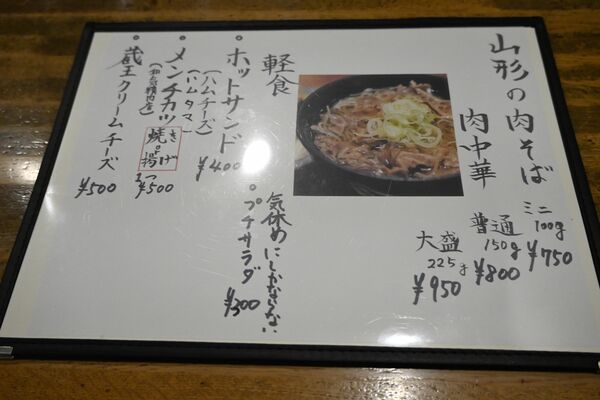 山形の肉そば
肉中華
ミニ
100g
¥750
普通
150g
¥800
大盛
225g
¥950
軽食
気休めにしかならない
プチサラダ
¥300
ホットサンド
(ハムチーズ)
(ハムタマー
¥400
メンチカツ
焼き
or
揚げ
2つ
¥500
蔵王クリームチーズ
¥500